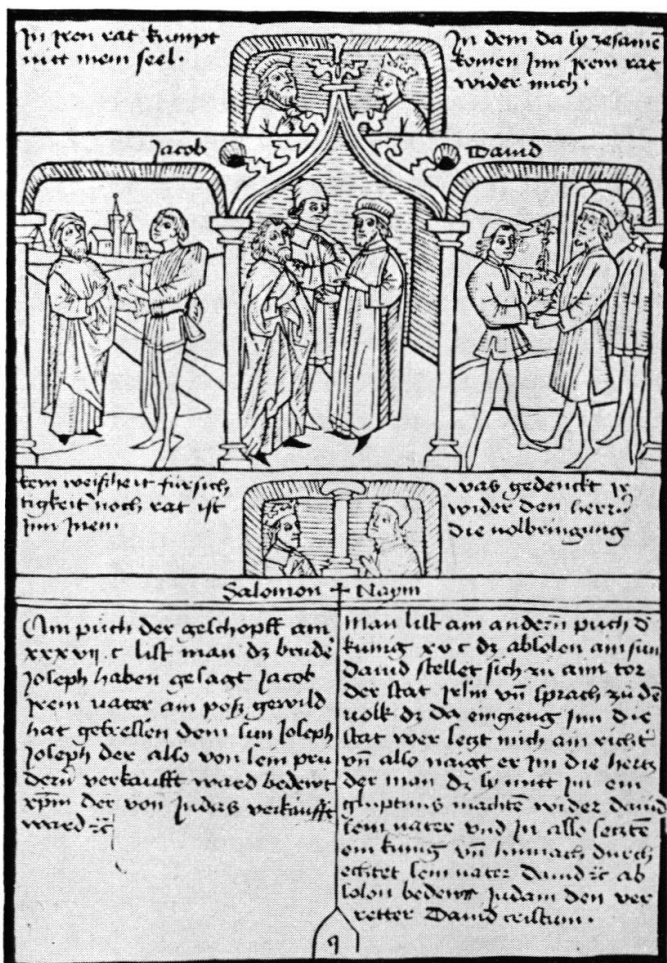 In iren rat kumpt
nitt mein seel.
In dem da sy zesamē
komen Inn irem rat
wider mich.
Jacob
David
kein weißheit fürsich
tigkeit noch rat ist
Inn Inen
was gedenckt ir
wider den herrn
die volbringung
Salomon + Naym
Am puch der geschopff am
xxxvij. c list man dz brüder
Joseph haben gesagt Jacob
Irem vater am poß gewild
hat gefressen dem sun Joseph
Joseph der also von sein prü
dern verkaufft ward bedewt
xpm̄ der von Judas verkaufft
ward ꝛc
Man list am andern puch d̄
kunig xv c dz absolon ain sun
david stellet sich zu aim tor
der stat jrlm vn̄ sprach zu dē
volk dz da eingieng Inn die
stat wer setzt mich ain richt
vn̄ also naigt er im die hertz
der man dz sy mitt im ein
machtē wider david
sein vater vnd In also setztē
ein kunig vn̄ hinnach durch
echtet sein vater david ꝛc ab
solon bedewtt Judam den ver
retter David cristum.
q